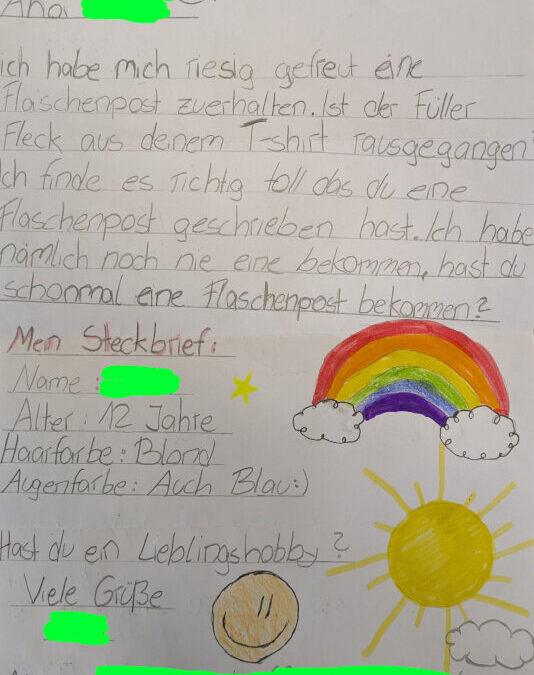 Ahoi
ich habe mich riesig gefreut eine
Flaschenpost zuerhalten. Ist der Füller
Fleck aus deinem T-shirt rausgegangen?
Ich finde es richtig toll das du eine
Flaschenpost geschrieben hast. Ich habe
nämlich noch nie eine bekommen, hast du
schonmal eine Flaschenpost bekommen?
Mein Steckbrief:
Name:
Alter: 12 Jahre
Haarfarbe: Blond
Augenfarbe: Auch Blau:)
Hast du ein Lieblingshobby?
Viele Grüße